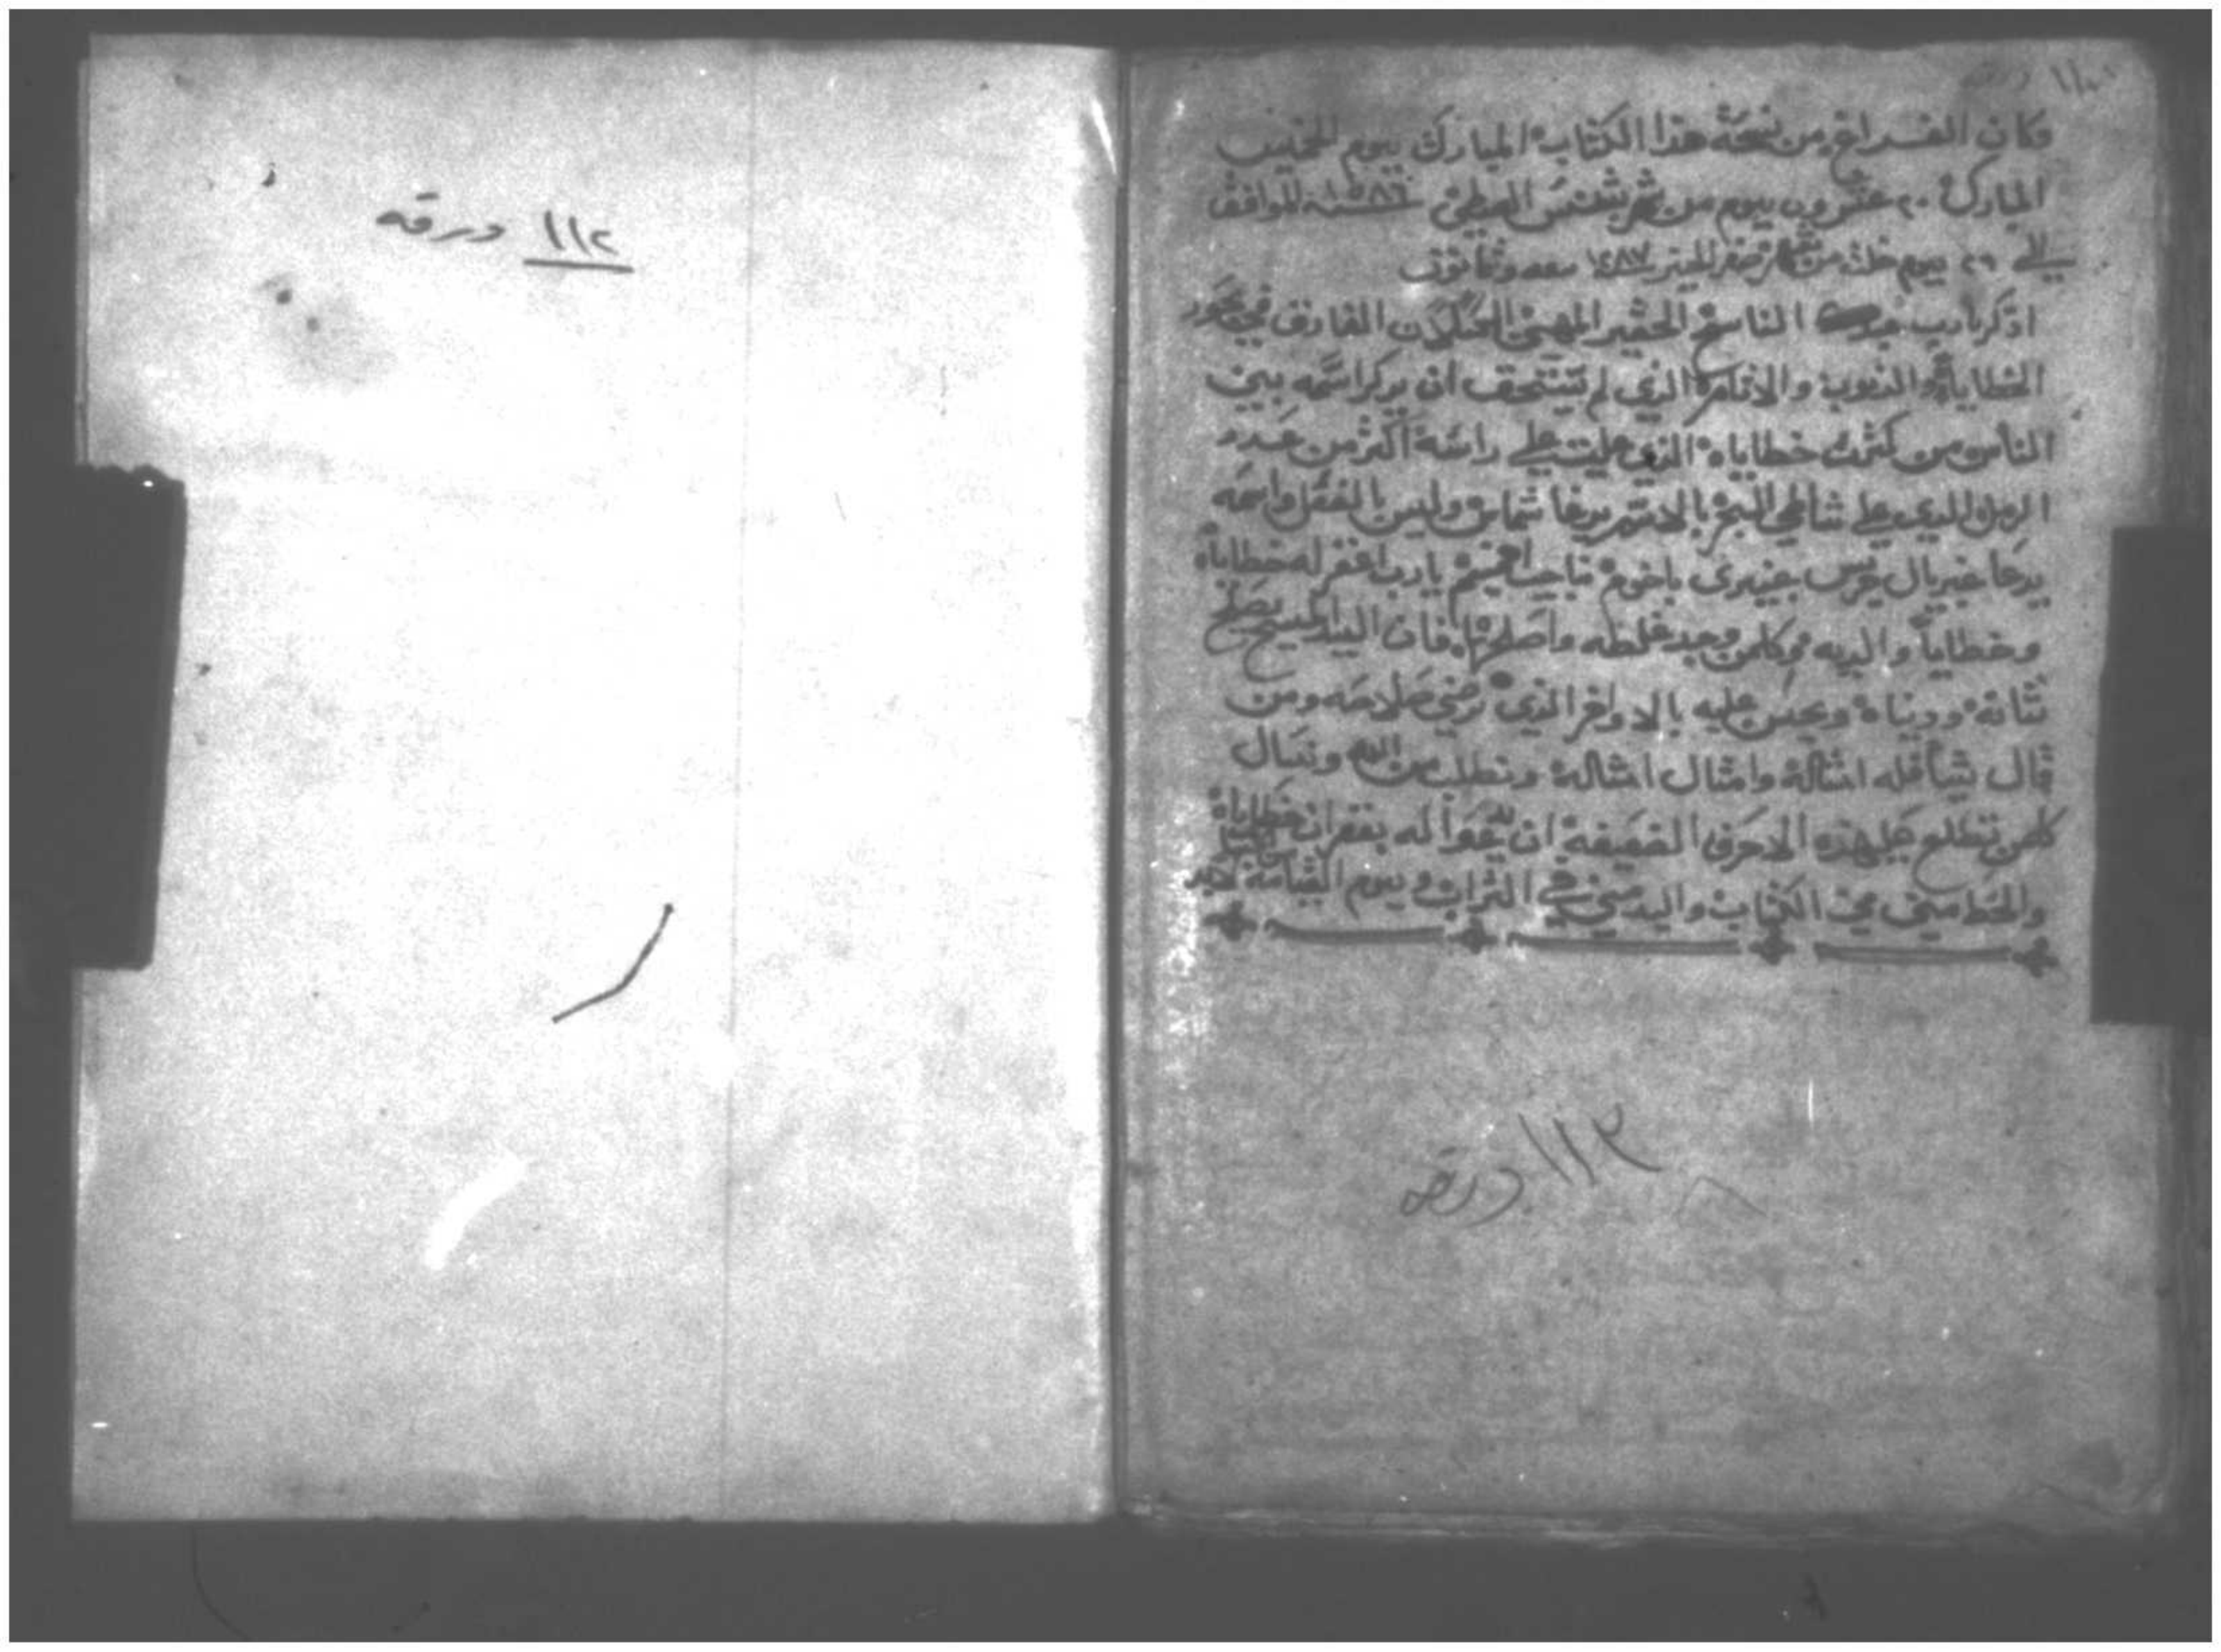 وكان الفراغ من نسخة هذا الكتاب المبارك يوم الخميس
المبارك ٢٠ عشرون يوم من شهر بشنس القبطي ١٥٨٦ سنه الموافق
الي ٢٦ يوم خلت من شهر صفر الخير ١٢٨٧ سبعه وثمانون
اذكر يارب عبدك الناسخ الحقير المهين الكسلان الغارق في بحور
الخطاياة والذنوب والاتام الذي لم يستحق ان يدكر اسمه بين
الناس من كثرت خطاياه الذي علت علي راسه اكثر من عدد
الرمل الدي علي شاطي البحر بالاسم يدعا شماس وليس بالفعل واسمه
يدعا غبريال جرس يارب اغفر له خطاياه
وخطاياة والديه وكلمن وجد غلطه واصلحها فان السيد المسيح يصلح
شانه ودنياه ويحسن عليه بالاواخر الذي ترضي صلاحه ومن
قال شيا فله امثاله وامثال امثاله ونطلب من الله ونسال
كلمن تطلع علي هذه الاحرف الضعيفة ان يدعوا له بغفران خطاياه
والخط مبني في الكتاب واليد مبني في التراب ويوم القيامة
١١٣ ورقه
١١٢ ورقه